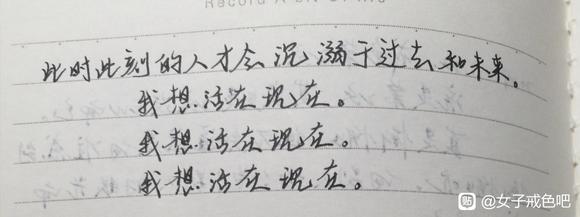 此时此刻的人才会沉溺于过去和未来。
我想活在现在。
我想活在现在。
我想活在现在。
贴 @女子戒色吧